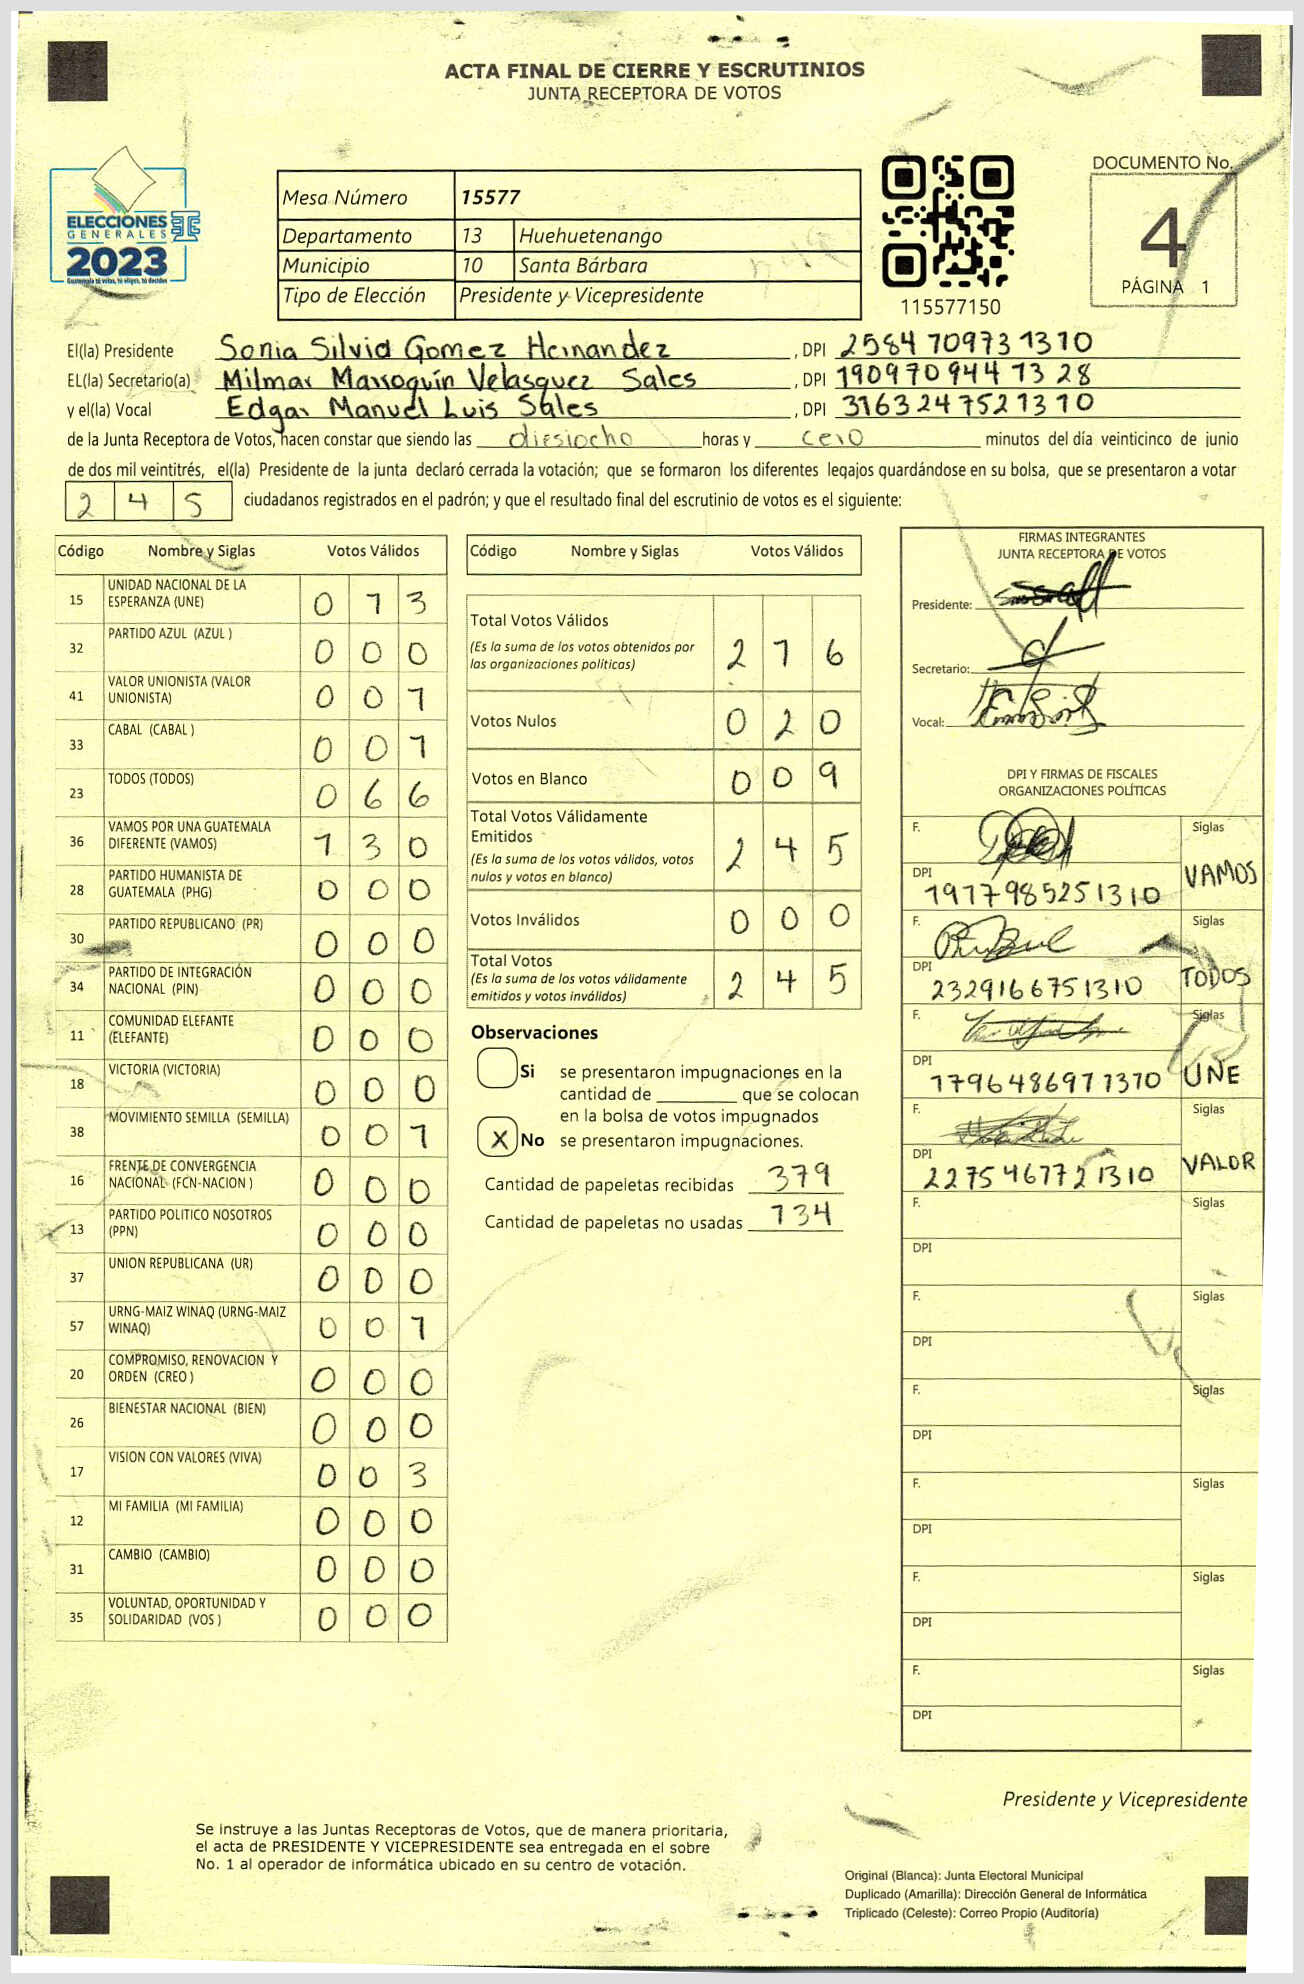 ACTA FINAL DE CIERRE Y ESCRUTINIOS
JUNTA RECEPTORA DE VOTOS
ELECCIONES
GENERALES
2023
Guatemala tú votas, tú eliges, tú decides
Mesa Número 15577
Departamento 13 Huehuetenango
Municipio 10 Santa Bárbara
Tipo de Elección Presidente y Vicepresidente
115577150
DOCUMENTO No.
4
PÁGINA 1
El(la) Presidente Sonia Silvia Gomez Hernandez, DPI 2584 70973 1310
EL(la) Secretario(a) Milmar Marroquín Velasquez Sales, DPI 190970944 1328
y el(la) Vocal Edgar Manuel Luis Sales, DPI 3163247521310
de la Junta Receptora de Votos, hacen constar que siendo las diesiocho horas y cero minutos del día veinticinco de junio
de dos mil veintitrés, el(la) Presidente de la junta declaró cerrada la votación; que se formaron los diferentes legajos guardándose en su bolsa, que se presentaron a votar
245 ciudadanos registrados en el padrón; y que el resultado final del escrutinio de votos es el siguiente:
Código Nombre y Siglas Votos Válidos
15 UNIDAD NACIONAL DE LA ESPERANZA (UNE) 013
32 PARTIDO AZUL (AZUL ) 000
41 VALOR UNIONISTA (VALOR UNIONISTA) 001
33 CABAL (CABAL ) 001
23 TODOS (TODOS) 066
36 VAMOS POR UNA GUATEMALA DIFERENTE (VAMOS) 130
28 PARTIDO HUMANISTA DE GUATEMALA (PHG) 000
30 PARTIDO REPUBLICANO (PR) 000
34 PARTIDO DE INTEGRACIÓN NACIONAL (PIN) 000
11 COMUNIDAD ELEFANTE (ELEFANTE) 000
18 VICTORIA (VICTORIA) 000
38 MOVIMIENTO SEMILLA (SEMILLA) 001
16 FRENTE DE CONVERGENCIA NACIONAL (FCN-NACION ) 000
13 PARTIDO POLITICO NOSOTROS (PPN) 000
37 UNION REPUBLICANA (UR) 000
57 URNG-MAIZ WINAQ (URNG-MAIZ WINAQ) 001
20 COMPROMISO, RENOVACION Y ORDEN (CREO ) 000
26 BIENESTAR NACIONAL (BIEN) 000
17 VISION CON VALORES (VIVA) 003
12 MI FAMILIA (MI FAMILIA) 000
31 CAMBIO (CAMBIO) 000
35 VOLUNTAD, OPORTUNIDAD Y SOLIDARIDAD (VOS ) 000
Código Nombre y Siglas Votos Válidos
Total Votos Válidos 216
(Es la suma de los votos obtenidos por
las organizaciones políticas)
Votos Nulos 020
Votos en Blanco 009
Total Votos Válidamente
Emitidos 245
(Es la suma de los votos válidos, votos
nulos y votos en blanco)
Votos Inválidos 000
Total Votos 245
(Es la suma de los votos válidamente
emitidos y votos inválidos)
Observaciones
Si se presentaron impugnaciones en la
cantidad de ________ que se colocan
en la bolsa de votos impugnados
X No se presentaron impugnaciones.
Cantidad de papeletas recibidas 379
Cantidad de papeletas no usadas 134
FIRMAS INTEGRANTES
JUNTA RECEPTORA DE VOTOS
Presidente:
Secretario:
Vocal:
DPI Y FIRMAS DE FISCALES
ORGANIZACIONES POLÍTICAS
F. Siglas
DPI 1917798525 1310 VAMOS
F. Siglas
DPI 2329166751310 TODOS
F. Siglas
DPI 1796486911310 UNE
F. Siglas
DPI 2275467721310 VALOR
F. Siglas
DPI
F. Siglas
DPI
F. Siglas
DPI
F. Siglas
DPI
F. Siglas
DPI
F. Siglas
DPI
Presidente y Vicepresidente
Se instruye a las Juntas Receptoras de Votos, que de manera prioritaria,
el acta de PRESIDENTE Y VICEPRESIDENTE sea entregada en el sobre
No. 1 al operador de informática ubicado en su centro de votación.
Original (Blanca): Junta Electoral Municipal
Duplicado (Amarilla): Dirección General de Informática
Triplicado (Celeste): Correo Propio (Auditoría)